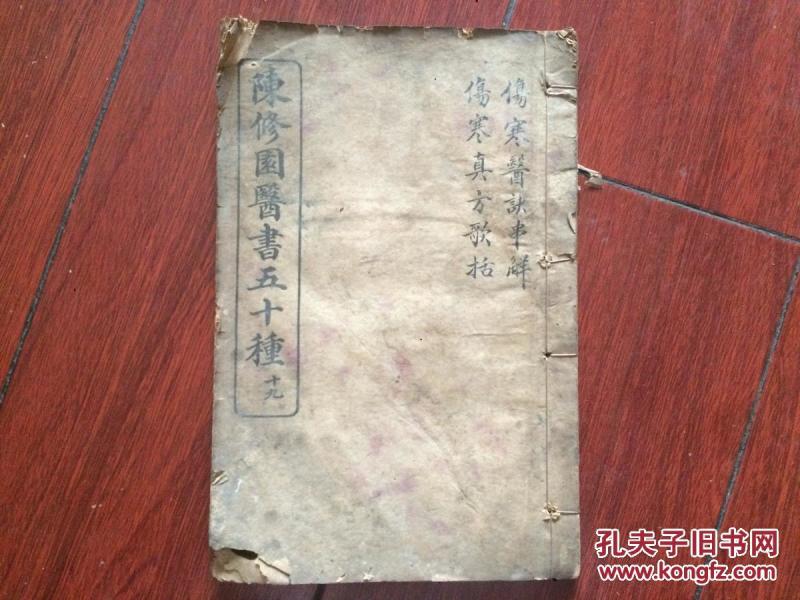 傷寒醫訣串解
傷寒真方歌括
陳修園醫書五十種 十九
孔夫子旧书网
www.kongfz.com